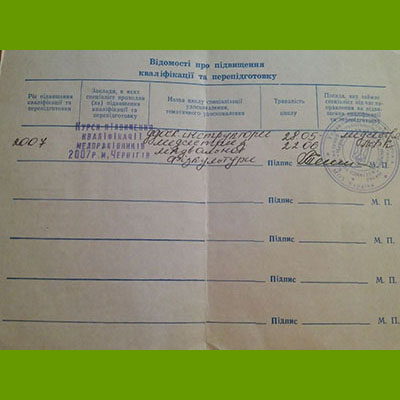 Відомості про підвищення
кваліфікації та перепідготовку
Рік підвищення кваліфікації та перепідготовки
Заклади, в яких спеціаліст проходив (ла) підвищення кваліфікації та перепідготовку
Назва циклу спеціалізації удосконалення, тематичного удосконалення
Тривалість циклу
Посада, яку займав спеціаліст під час направлення на підвищення кваліфікації та перепідготовку
2007
КУРСИ ПІДВИЩЕННЯ
КВАЛІФІКАЦІЇ
МЕДПРАЦІВНИКІВ
2007 р. м. ЧЕРНІГІВ
інструктори
фізкультури
28.05
22.06
Підпис М. П.
Підпис М. П.
Підпис М. П.
Підпис М. П.
Підпис М. П.